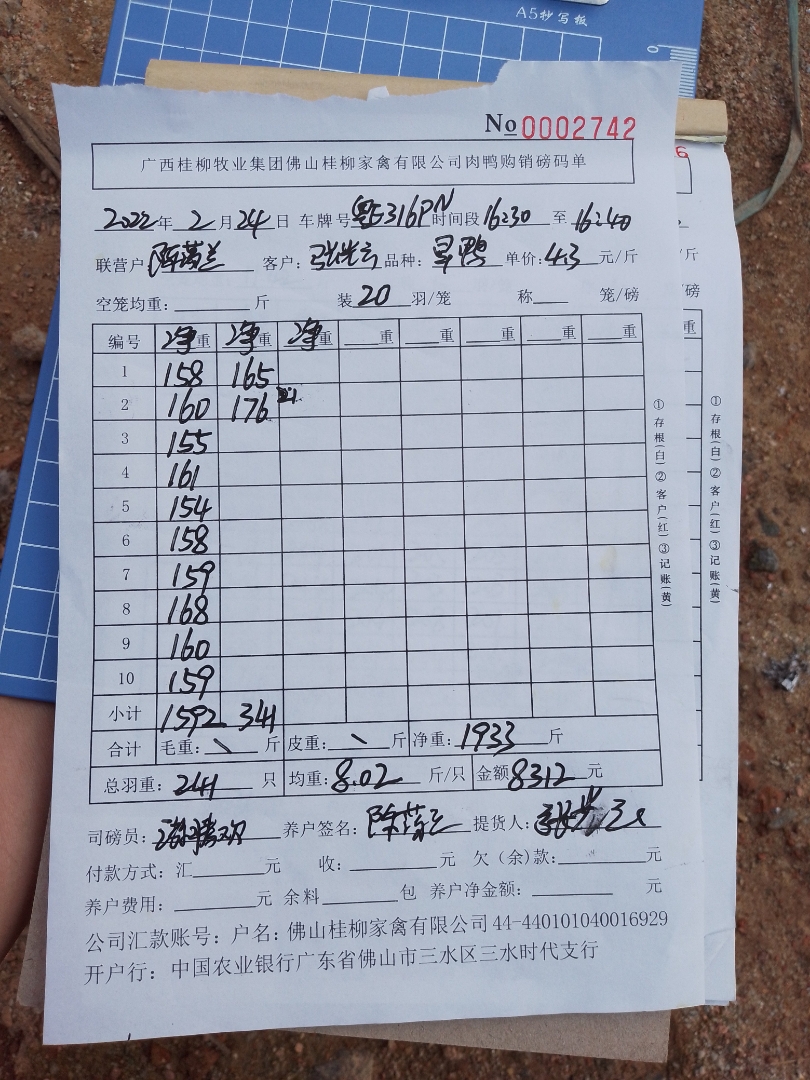 A5秒写板
0
No 0002742
广西桂柳牧业集团佛山桂柳家禽有限公司肉鸭购销磅码单
2022年 2月24日 车牌号 粤E5316PN 时间段 16:30 至 16:40
联营户 客户: 品种: 旱鸭 单价: 4.3 元/斤
空笼均重: 斤 装 20 羽/笼 称 笼/磅
编号 净重 净重 净重 重 重 重 重 重
1 158 165
2 160 176
3 155
4 161
5 154
6 158
7 159
8 168
9 160
10 159
小计 1592 341
合计 毛重: \ 斤 皮重: \ 斤 净重: 1933 斤
总羽重: 241 只 均重: 8.02 斤/只 金额 8312 元
司磅员: 养户签名: 提货人:
付款方式: 汇 元 收: 元 欠(余)款: 元
养户费用: 元 余料 包 养户净金额: 元
公司汇款账号: 户名: 佛山桂柳家禽有限公司 44-440101040016929
开户行: 中国农业银行广东省佛山市三水区三水时代支行
①存根(白)②客户(红)③记账(黄)
6
/斤
/磅
重
①存根(白)②客户(红)③记账(黄)